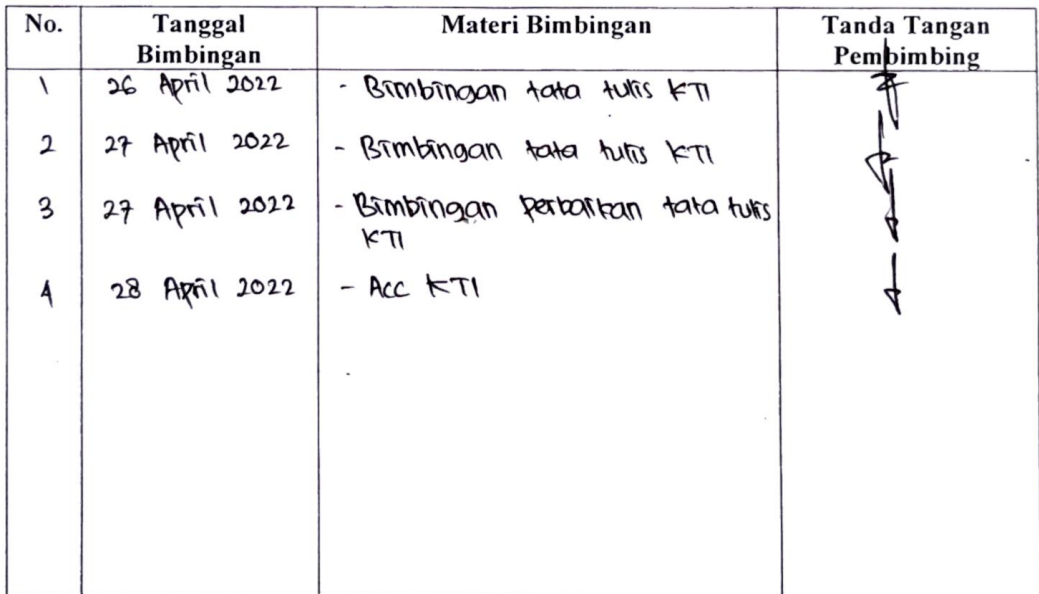 No. Tanggal Bimbingan Materi Bimbingan Tanda Tangan Pembimbing
1 26 April 2022 - Bimbingan tata tulis KTI
2 27 April 2022 - Bimbingan tata tulis KTI
3 27 April 2022 - Bimbingan perbaikan tata tulis
KTI
4 28 April 2022 - Acc KTI